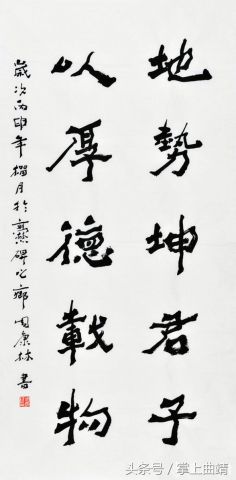 地勢坤君子
以厚德載物
歲次丙申年榴月於爨碑之鄉周康林書
头条号 / 掌上曲靖